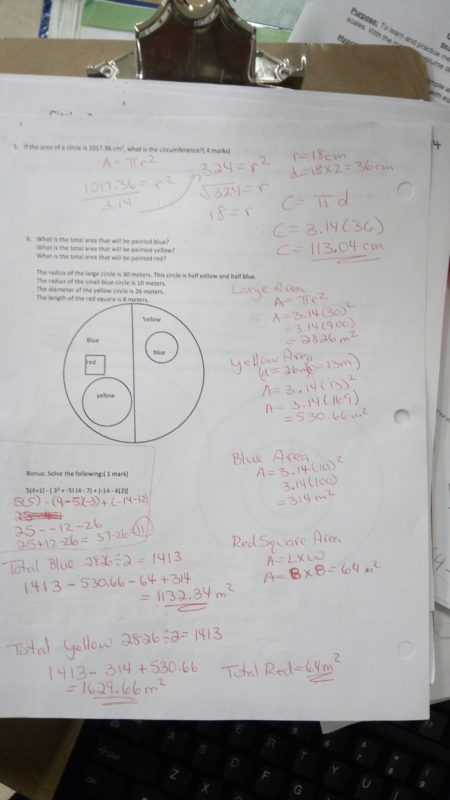 Purpose: To learn and practice me
scales. With the
5. If the area of a circle is 1017.36 cm², what is the circumference?( 4 marks)
A = πr²
1017.36 = r²
3.14
324 = r²
√324 = r
18 = r
r = 18cm
d = 18 x 2 = 36cm
C = π d
C = 3.14(36)
C = 113.04 cm
6. What is the total area that will be painted blue?
What is the total area that will be painted yellow?
What is the total area that will be painted red?
The radius of the large circle is 30 meters. This circle is half yellow and half blue.
The radius of the small blue circle is 10 meters.
The diameter of the yellow circle is 26 meters.
The length of the red square is 8 meters.
Yellow
Blue
blue
red
yellow
Large Area
A = πr²
A = 3.14(30)²
= 3.14(900)
= 2826 m²
Yellow Area
(d = 26m r = 13m)
A = 3.14(13)²
A = 3.14(169)
= 530.66 m²
Blue Area
A = 3.14(10)²
3.14(100)
= 314 m²
Red Square Area
A = L x W
A = 8 x 8 = 64 m²
Bonus: Solve the following:( 1 mark)
5(4+1) - ( 3² + -5) (4 - 7) + [-14 - 6(2)]
5(5) - (9-5)(-3) + (-14-12)
25 - -12 - 26
25 + 12 - 26 = 37-26 = 11
Total Blue 2826 ÷ 2 = 1413
1413 - 530.66 - 64 + 314
= 1132.34 m²
Total Yellow 2826 ÷ 2 = 1413
1413 - 314 + 530.66
= 1629.66 m²
Total Red = 64m²